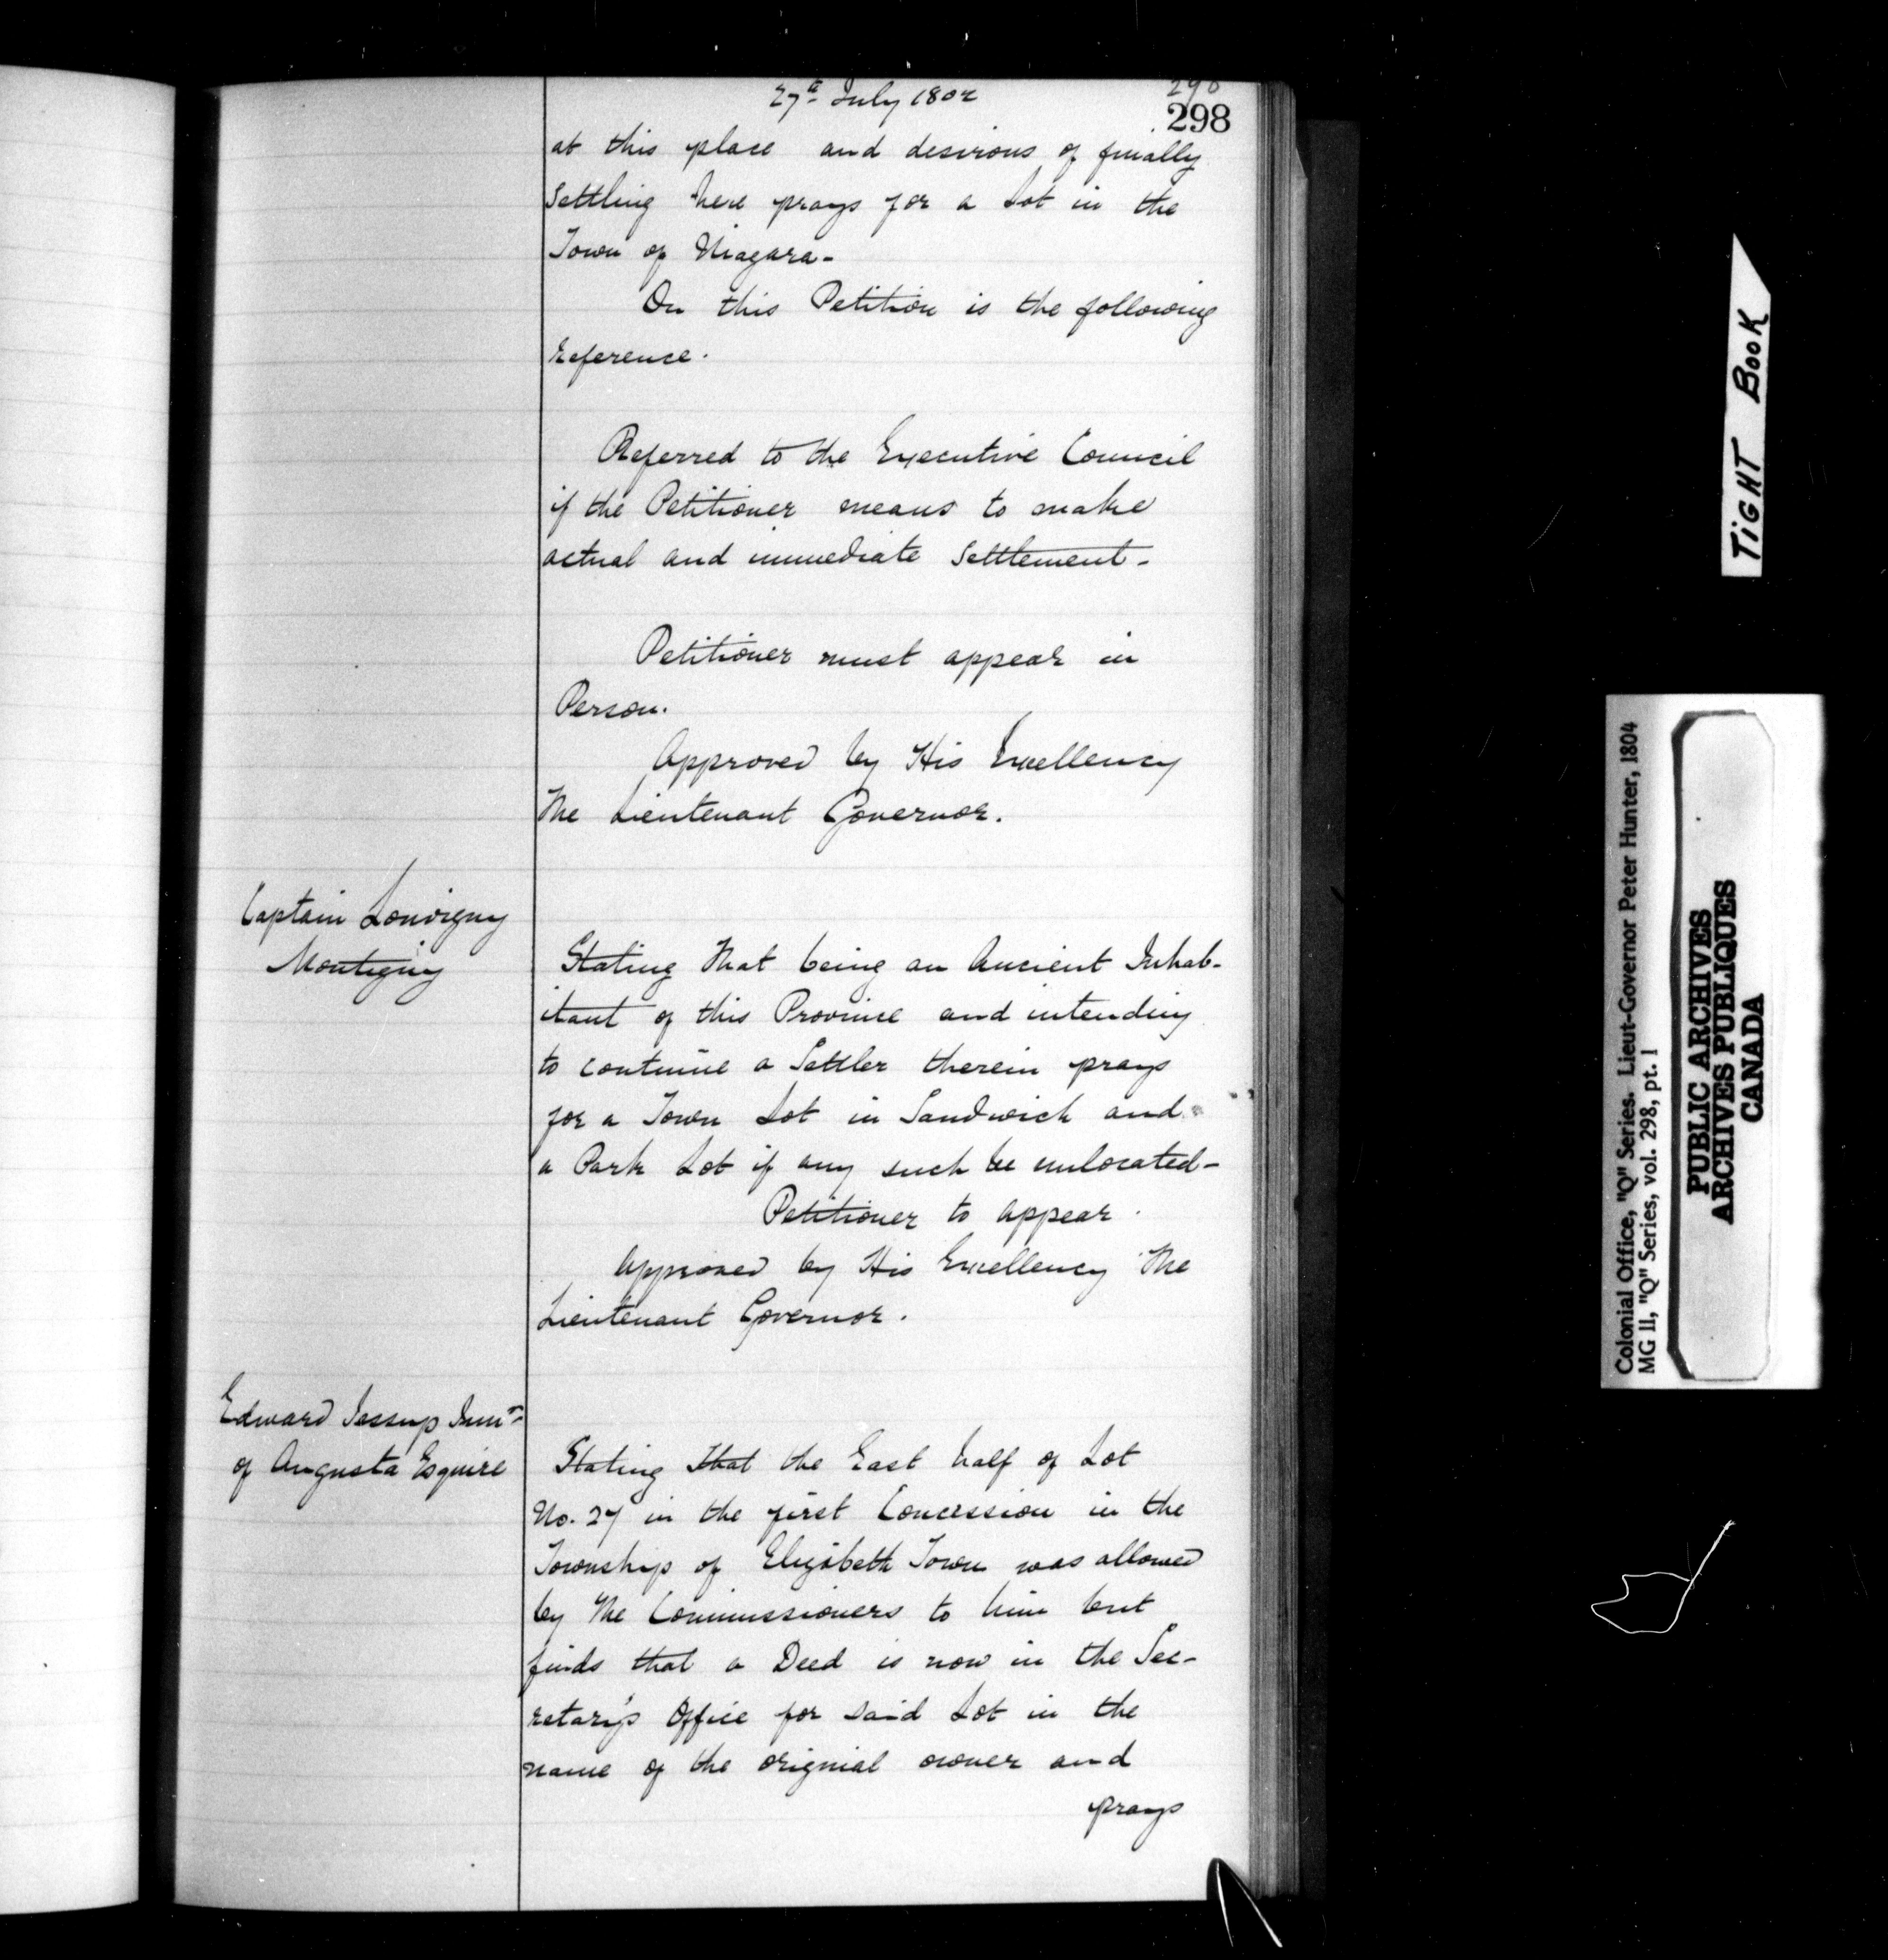 27th July 1802
290
298
at this place and desirous of finally
settling here prays for a Lot in the
Town of Niagara-
On this Petition is the following
reference.
Referred to the Executive Council
if the Petitioner means to make
actual and immediate settlement-
Petitioner must appear in
Person.
Approved by His Excellency
The Lieutenant Governor.
Captain Louvigny
Montigny
Stating That being an Ancient Inhab-
itant of this Province and intending
to continue a Settler therein prays
for a Town Lot in Sandwich and
a Park Lot if any such be unlocated-
Petitioner to appear.
Approved by His Excellency The
Lieutenant Governor.
Edward Jessup Junr
of Augusta Esquire
Stating that the East half of Lot
No. 27 in the first Concession in the
Township of Elizabeth Town was allowed
by The Commissioners to him but
finds that a Deed is now in the Sec-
retary's Office for said Lot in the
name of the original owner and
prays
TIGHT BOOK
Colonial Office, "Q" Series. Lieut-Governor Peter Hunter, 1804
MG 11, "Q" Series, vol. 298, pt. 1
PUBLIC ARCHIVES
ARCHIVES PUBLIQUES
CANADA